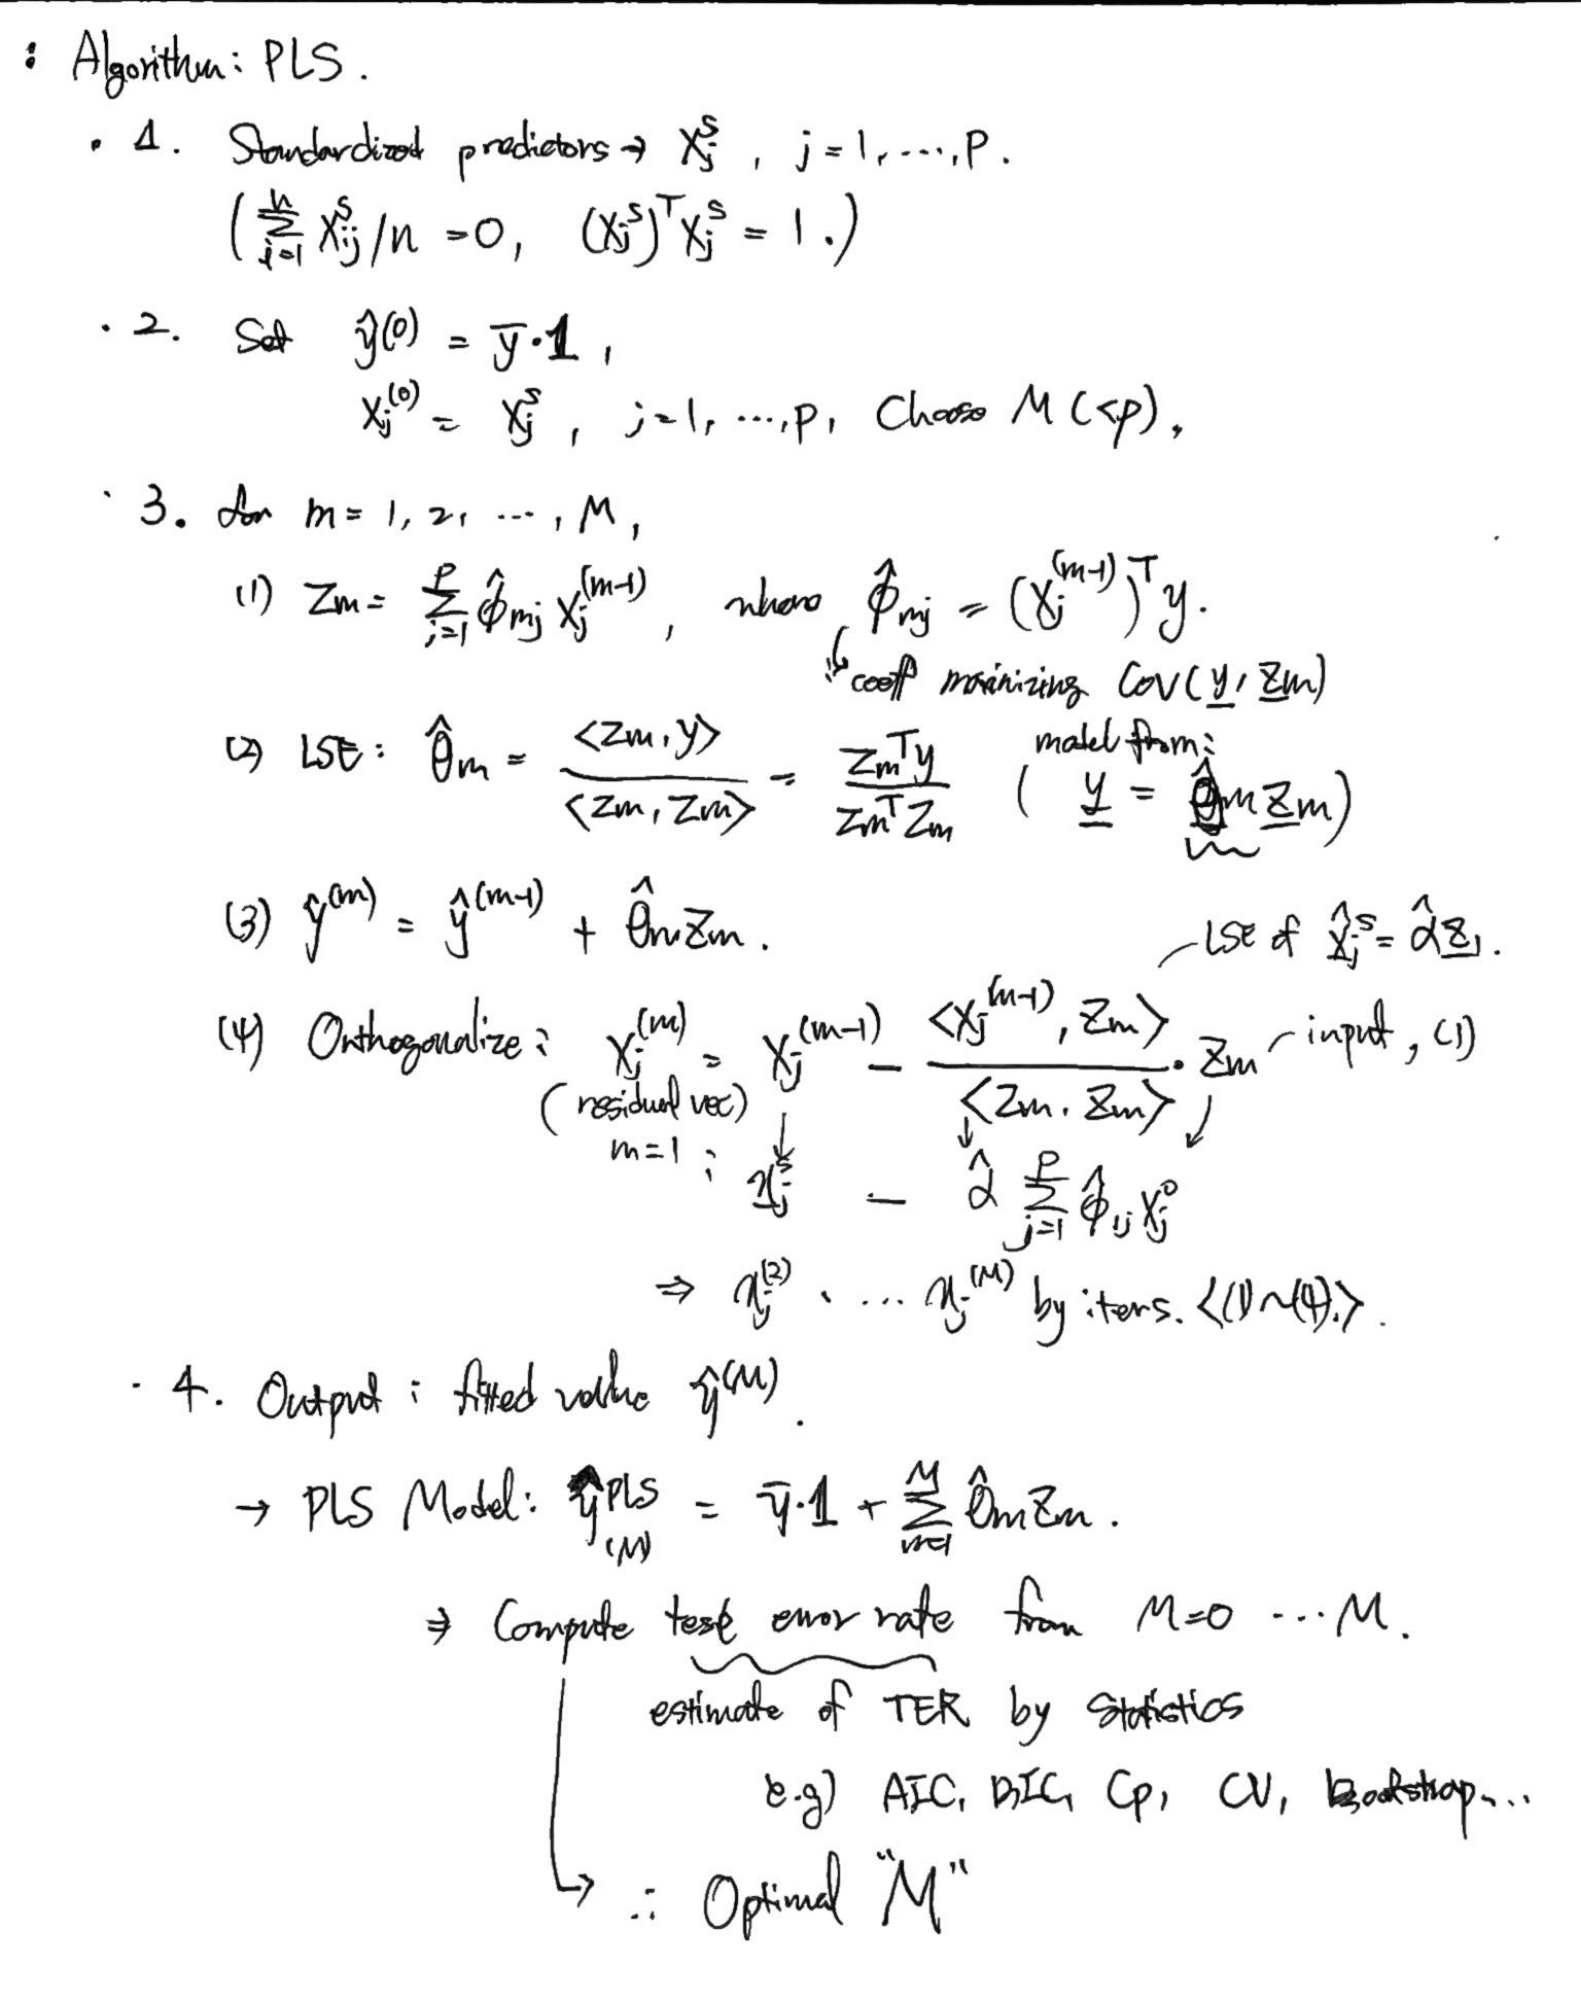 : Algorithm: PLS.
· 1. Standardized predictors → Xⱼˢ, j=1, ..., p.
(Σᵢ₌₁ⁿ Xᵢⱼˢ/n = 0, (Xⱼˢ)ᵀXⱼˢ = 1.)
· 2. Set ŷ⁽⁰⁾ = ȳ·𝟏,
Xⱼ⁽⁰⁾ = Xⱼˢ, j=1, ..., p, Choose M(<p),
· 3. for m = 1, 2, ..., M,
(1) Zm = Σⱼ₌₁ᵖ φ̂mj Xⱼ⁽ᵐ⁻¹⁾, where φ̂mj = (Xⱼ⁽ᵐ⁻¹⁾)ᵀy.
coeff maximizing Cov(y, Zm)
(2) LSE: θ̂m = <Zm, y> / <Zm, Zm> = Zmᵀy / ZmᵀZm (model from: y = θ̂m Zm)
(3) ŷ⁽ᵐ⁾ = ŷ⁽ᵐ⁻¹⁾ + θ̂mZm.
LSE of X̂ⱼˢ = α̂Z₁.
(4) Orthogonalize: Xⱼ⁽ᵐ⁾ = Xⱼ⁽ᵐ⁻¹⁾ − <Xⱼ⁽ᵐ⁻¹⁾, Zm> / <Zm, Zm> · Zm input, (1)
(residual vec)
m=1 : xⱼˢ − α̂ Σⱼ₌₁ᵖ φ̂₁ⱼ Xⱼ⁰
⇒ xⱼ⁽²⁾, ... xⱼ⁽ᴹ⁾ by iters. <(1)~(4).>.
· 4. Output : fitted value ŷ⁽ᴹ⁾.
→ PLS Model: ŷ₍M₎ᴾᴸˢ = ȳ·𝟏 + Σₘ₌₁ᴹ θ̂mZm.
⇒ Compute test error rate from M=0 ... M.
estimate of TER by Statistics
e.g) AIC, BIC, Cp, CV, Bootstrap...
→ ∴ Optimal "M"